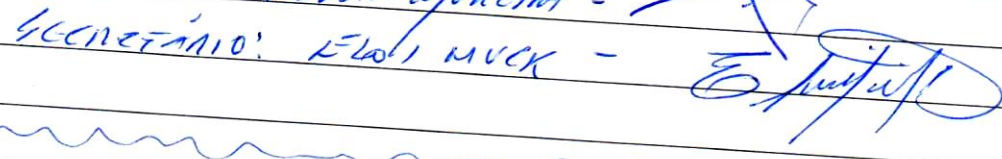 SECRETÁRIO: ELOI MUCK -